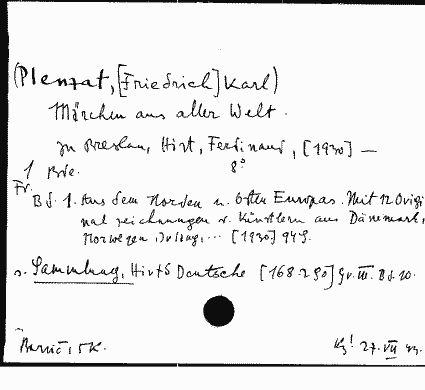 (Plenzat, [Friedrich] Karl)
Märchen aus aller Welt.
zu Breslau, Hirt, Ferdinand, [1930] —
1 Bde. 8°
Fr.
Bd. 1. Aus dem Norden u. Osten Europas. Mit 12 Origi
nalzeichnungen v. Künstlern aus Dänemark,
Norwegen, ... [1930] 94 S.
s. Sammlung, Hirts Deutsche [168-290] Gr. III. Bd. 10.
27. VII